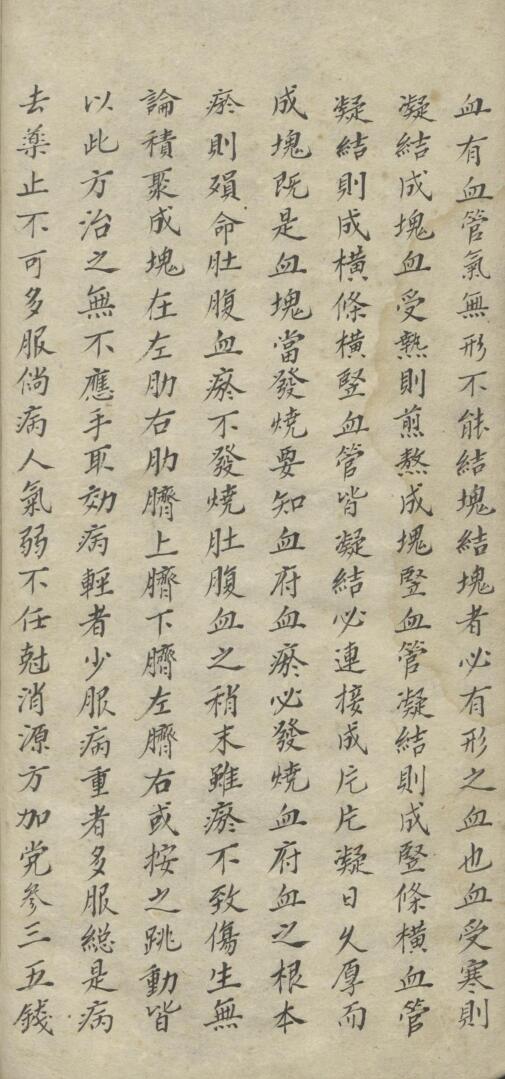 血有血管氣無形不能結塊結塊者必有形之血也血受寒則
凝結成塊血受熱則煎熬成塊竪血管凝結則成竪條橫血管
凝結則成橫條橫竪血管皆凝結必連接成片片凝日久厚而
成塊既是血塊當發燒要知血府血瘀必發燒血府血之根本
瘀則殞命肚腹血瘀不發燒肚腹血之稍末雖瘀不致傷生無
論積聚成塊在左肋右肋臍上臍下臍左臍右或按之跳動皆
以此方治之無不應手取効病輕者少服病重者多服總是病
去藥止不可多服倘病人氣弱不任尅消源方加党参三五錢